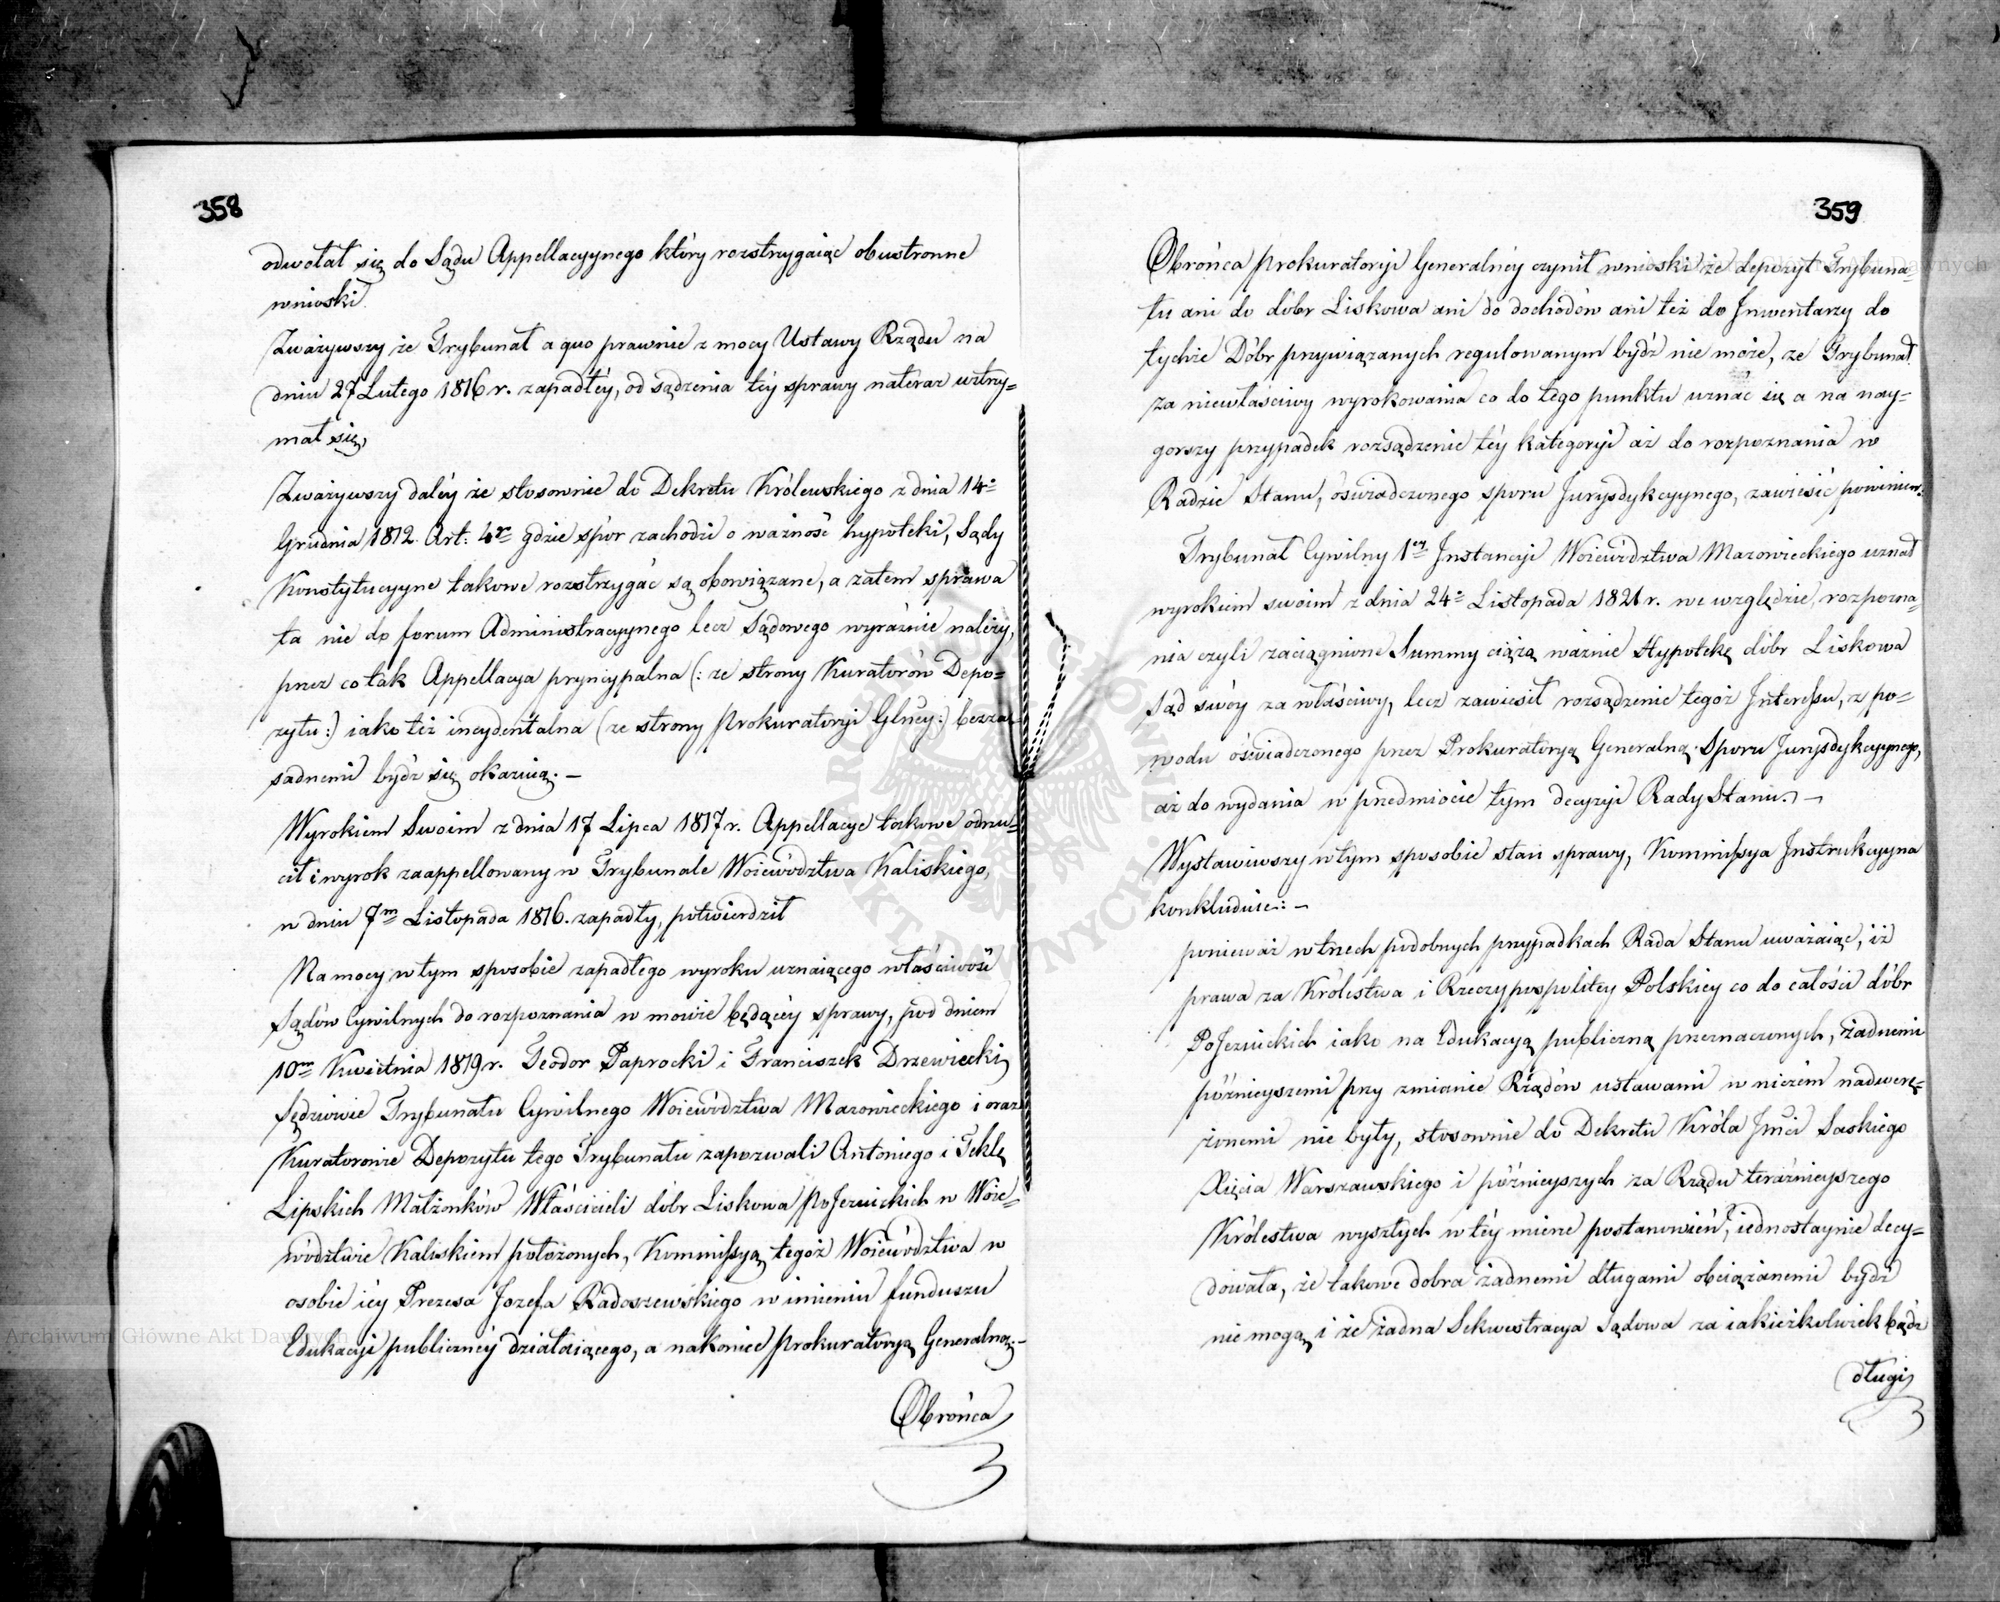 358
odwołał się do Sądu Appellacyynego który rozstrzygaiąc obustronne
wnioski
Zważywszy że Trybunał a quo prawnie z mocy Ustawy Rządu na
dniu 27 Lutego 1816 r. zapadłéy, od sądzenia téy sprawy nateraz wstrzy=
mał się,
Zważywszy daléy że stosownie do Dekretu Królewskiego z dnia 14º
Grudnia 1812. Art: 4º gdzie spór zachodzi o ważność hypoteki, Sądy
Konstytucyyne takowe rozstrzygać są obowiązane, a zatem sprawa
ta nie do forum Administracyynego lecz Sądowego wyraźnie należy,
przez co tak Appellacya pryncypalna (: ze strony Kuratorów Depo=
zytu:) iako też incydentalna (ze strony Prokuratoryi Glnéy:) bezza
sadnemi bydź się okazuią. —
Wyrokiem Swoim z dnia 17 Lipca 1817 r. Appellacye takowe odrzu=
cił i wyrok zaappellowany w Trybunale Woiewództwa Kaliskiego,
w dniu 7m Listopada 1816. zapadły, potwierdził
Na mocy w tym sposobie zapadłego wyroku uznaiącego właściwość
Sądów Cywilnych do rozpoznania w mowie będącéy sprawy, pod dniem
10m Kwietnia 1819 r. Teodor Paprocki i Franciszek Drzewiecki
Sędziowie Trybunału Cywilnego Woiewództwa Mazowieckiego i oraz
Kuratorowie Depozytu tego Trybunału zapozwali Antoniego i Teklę
Lipskich Małżonków Właścicieli dóbr Liskowa PoJezuickich w Woie=
wództwie Kaliskiem położonych, Kommissyą tegoż Woiewództwa w
osobie iéy Prezesa Jozefa Radoszewskiego w imieniu funduszu
Edukacyi publicznéy działaiącego, a nakoniec Prokuratoryą Generalną:—
Obrońca
359
Obrońca Prokuratoryi Generalnéy czynił wnioski że depozyt Trybuna=
łu ani do dóbr Liskowa ani do dochodów ani też do Inwentarzy do
tychże Dóbr przywiązanych regulowanym bydź nie może, ze Trybunał
za niewłaściwy wyrokowania co do tego punktu uznać się a na nay=
gorszy przypadek rozsądzenie téy kategoryi aż do rozpoznania w
Radzie Stanu, oświadczonego sporu Jurysdykcyynego, zawiesić powinien.
Trybunał Cywilny 1ey Instancyi Woiewództwa Mazowieckiego uznał
wyrokiem swoim z dnia 24º Listopada 1821 r. we względzie, rozpozna=
nia czyli zaciągnione Summy ciążą ważnie Hypotekę dóbr Liskowa
sąd swóy za właściwy, lecz zawiesił rozsądzenie tegoż Interessu, z po=
wodu oświadczonego przez Prokuratoryą Generalną Sporu Jurysdykcyynego,
aż do wydania w przedmiocie tym decyzyi Rady Stanu. —
Wystawiwszy w tym sposobie stan sprawy, Kommissya Instrukcyyna
konkluduie: —
ponieważ w trzech podobnych przypadkach Rada Stanu uważaiąc, iż
prawa za Królestwa i Rzeczypospolitey Polskiey co do całości dóbr
PoJezuickich iako na Edukacyą publiczną przeznaczonych, żadnemi
późnieyszemi przy zmianie Rządów ustawami w niczém nadwerę=
żonemi nie były, stosownie do Dekretu Króla Jmci Saskiego
Xięcia Warszawskiego i późnieyszych za Rządu teraźnieyszego
Królestwa wyszłych w téy mierze postanowień, iednostaynie decy=
dowała, że takowe dobra żadnemi długami obciążanemi bydź
nie mogą i że żadna Sekwestracya sądowa za iakieżkolwiek bądź
długi
Archiwum Główne Akt Dawnych